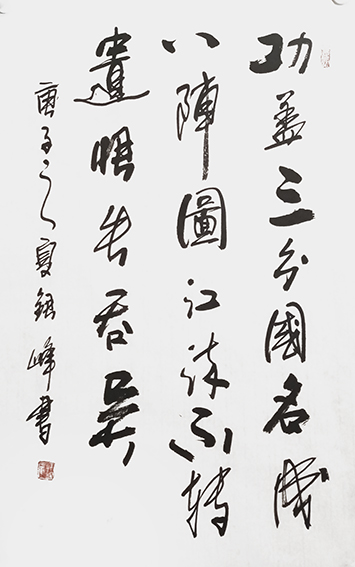 功蓋三分國名成
八陣圖江流不轉
遺恨失吞吳
庚子之夏峰書